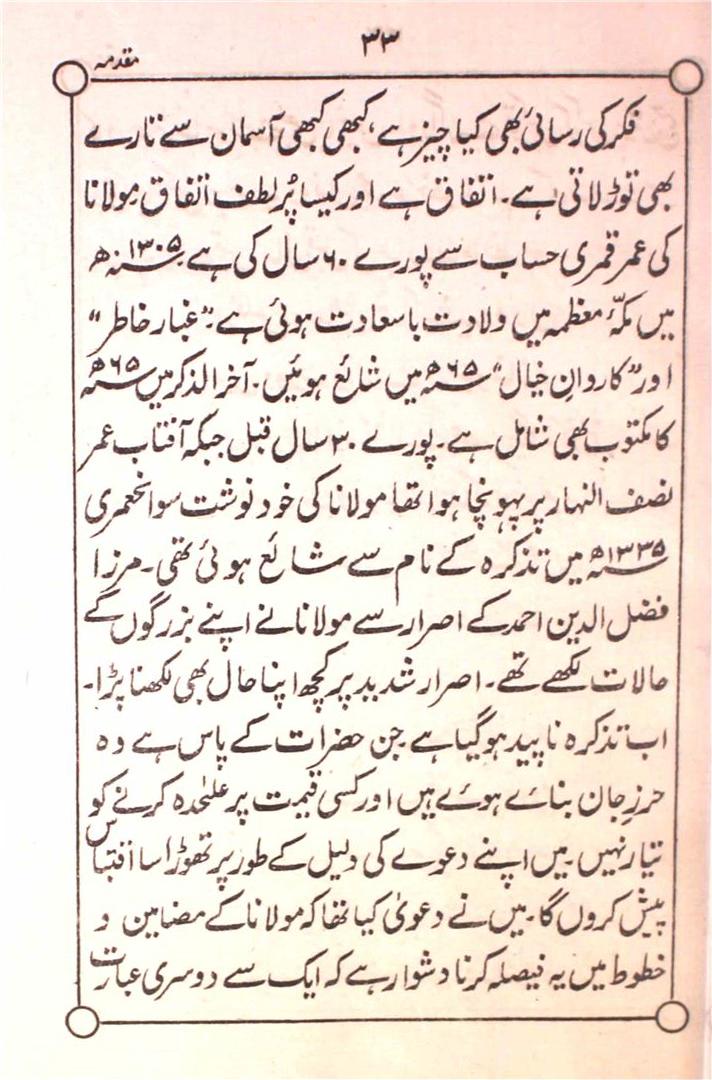 ۳۳
مقدمہ
فکر کی رسائی بھی کیا چیز ہے، کبھی کبھی آسمان سے تارے
بھی توڑ لاتی ہے۔ اتفاق ہے اور کیسا پُر لطف اتفاق مولانا
کی عمر قمری حساب سے پورے ۶۰ سال کی ہے ۱۳۰۵ھ
میں مکّۂ معظمہ میں ولادت باسعادت ہوئی ہے۔ "غبار خاطر"
اور "کاروانِ خیال" ۶۵ھ میں شائع ہوئیں۔ آخر الذکر میں ۶۵ھ
کا مکتوب بھی شامل ہے۔ پورے ۳۰ سال قبل جبکہ آفتاب عمر
نصف النہار پر پہونچا ہوا تھا مولانا کی خود نوشت سوانحعمری
۱۳۳۵ھ میں تذکرہ کے نام سے شائع ہوئی تھی۔ مرزا
فضل الدین احمد کے اصرار سے مولانا نے اپنے بزرگوں کے
حالات لکھے تھے۔ اصرار شدید پر کچھ اپنا حال بھی لکھنا پڑا۔
اب تذکرہ ناپید ہوگیا ہے جن حضرات کے پاس ہے وہ
حرزِ جان بنائے ہوئے ہیں اور کسی قیمت پر علیٰحدہ کرنے کو
تیار نہیں۔ میں اپنے دعوے کی دلیل کے طور پر تھوڑا سا اقتباس
پیش کروں گا۔ میں نے دعویٰ کیا تھا کہ مولانا کے مضامین و
خطوط میں یہ فیصلہ کرنا دشوار ہے کہ ایک سے دوسری عبارت